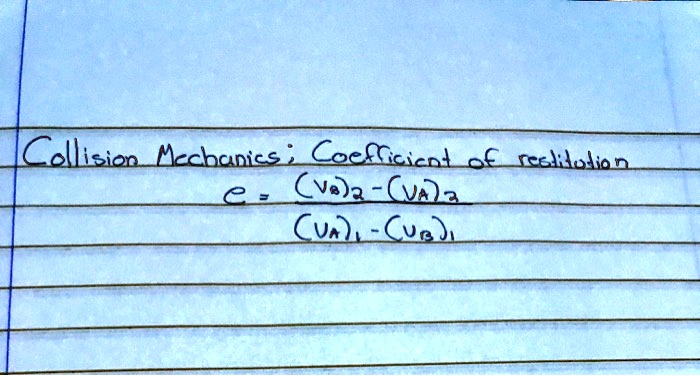 Collision Mechanics; Coefficient of restitution
e = (VB)2 - (VA)2
(VA)1 - (VB)1